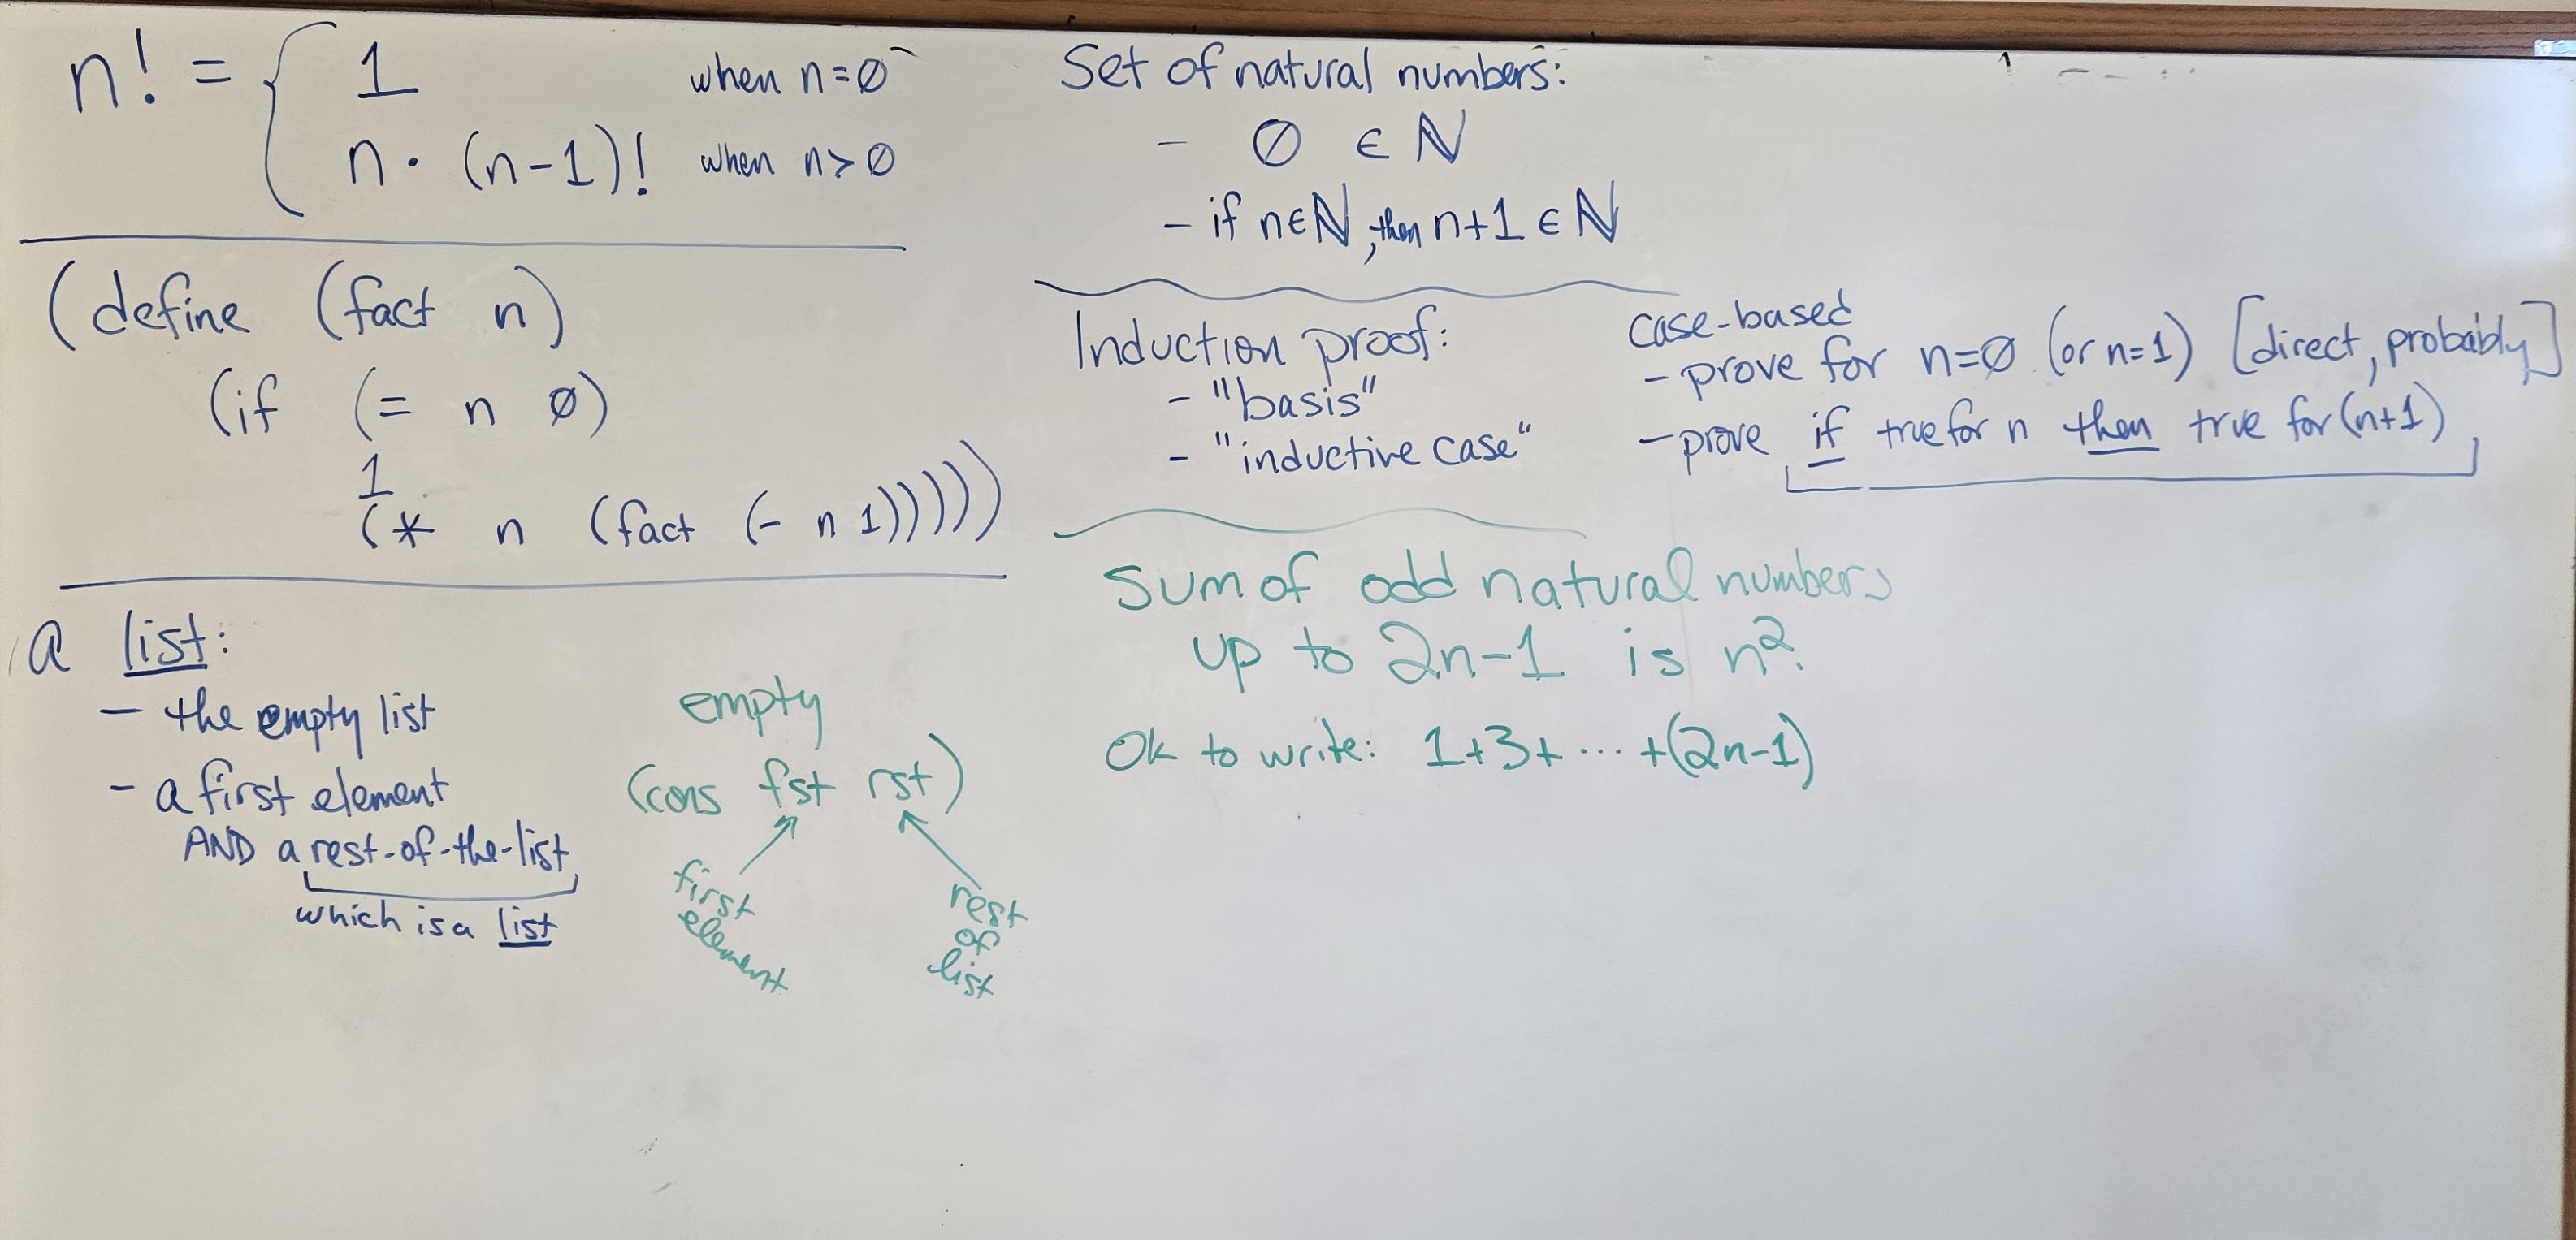 n! = { 1 when n=0
n · (n-1)! when n>0
(define (fact n)
(if (= n 0)
1
(* n (fact (- n 1)))))
a list:
- the empty list
- a first element
AND a rest-of-the-list
which is a list
empty
(cons fst rst)
first
element
rest
of
list
Set of natural numbers:
- 0 ∈ ℕ
- if n∈ℕ, then n+1 ∈ ℕ
Induction proof:
- "basis"
- "inductive case"
case-based
- prove for n=0 (or n=1) [direct, probably]
- prove if true for n then true for (n+1)
Sum of odd natural numbers
up to 2n-1 is n².
Ok to write: 1+3+ ··· +(2n-1)